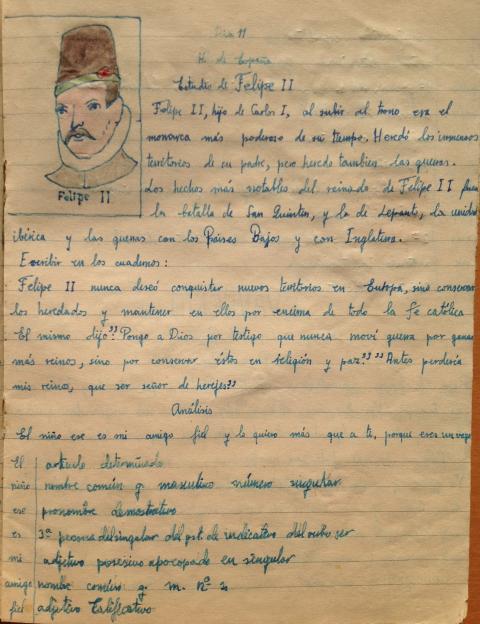 Día 11
H. de España
Estudio de Felipe II
Felipe II, hijo de Carlos I, al subir al trono era el
monarca más poderoso de su tiempo. Heredó los inmensos
territorios de su padre, pero heredo tambien las guerras.
Los hechos más notables del reinado de Felipe II fueron
la batalla de San Quintín, y la de Lepanto, la unidad
ibérica y las guerras con los Paises Bajos y con Inglaterra.
Felipe II
Escribir en los cuadernos:
Felipe II nunca deseó conquistar nuevos territorios en Europa, sino conservar
los heredados y mantener en ellos por encima de todo la fe católica
El mismo dijo: "Pongo a Dios por testigo que nunca moví guerra por ganar
más reinos, sino por conservar éstos en religión y paz" "Antes perdería
mis reinos, que ser señor de herejes"
Análisis
El niño ese es mi amigo fiel y le quiero más que a ti, porque eres un vago
El artículo determinado
niño nombre común g. masculino número singular
ese pronombre demostrativo
es 3ª persona del singular del pst. de indicativo del verbo ser
mi adjetivo posesivo apocopado en singular
amigo nombre común g. m. nº s.
fiel adjetivo calificativo